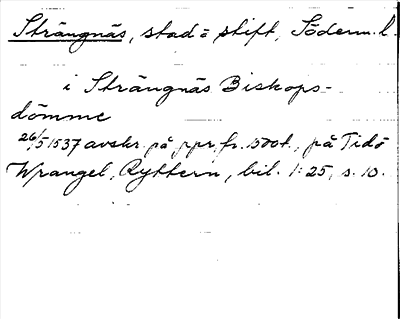 Strängnäs, stad o stift, Söderm. l.
i Strängnäs Biskops-
dömme
26/5 1537 avskr. på ppr fr. 1500t., på Tidö
Wrangel, Ryttern, bil. 1:25, s. 10.